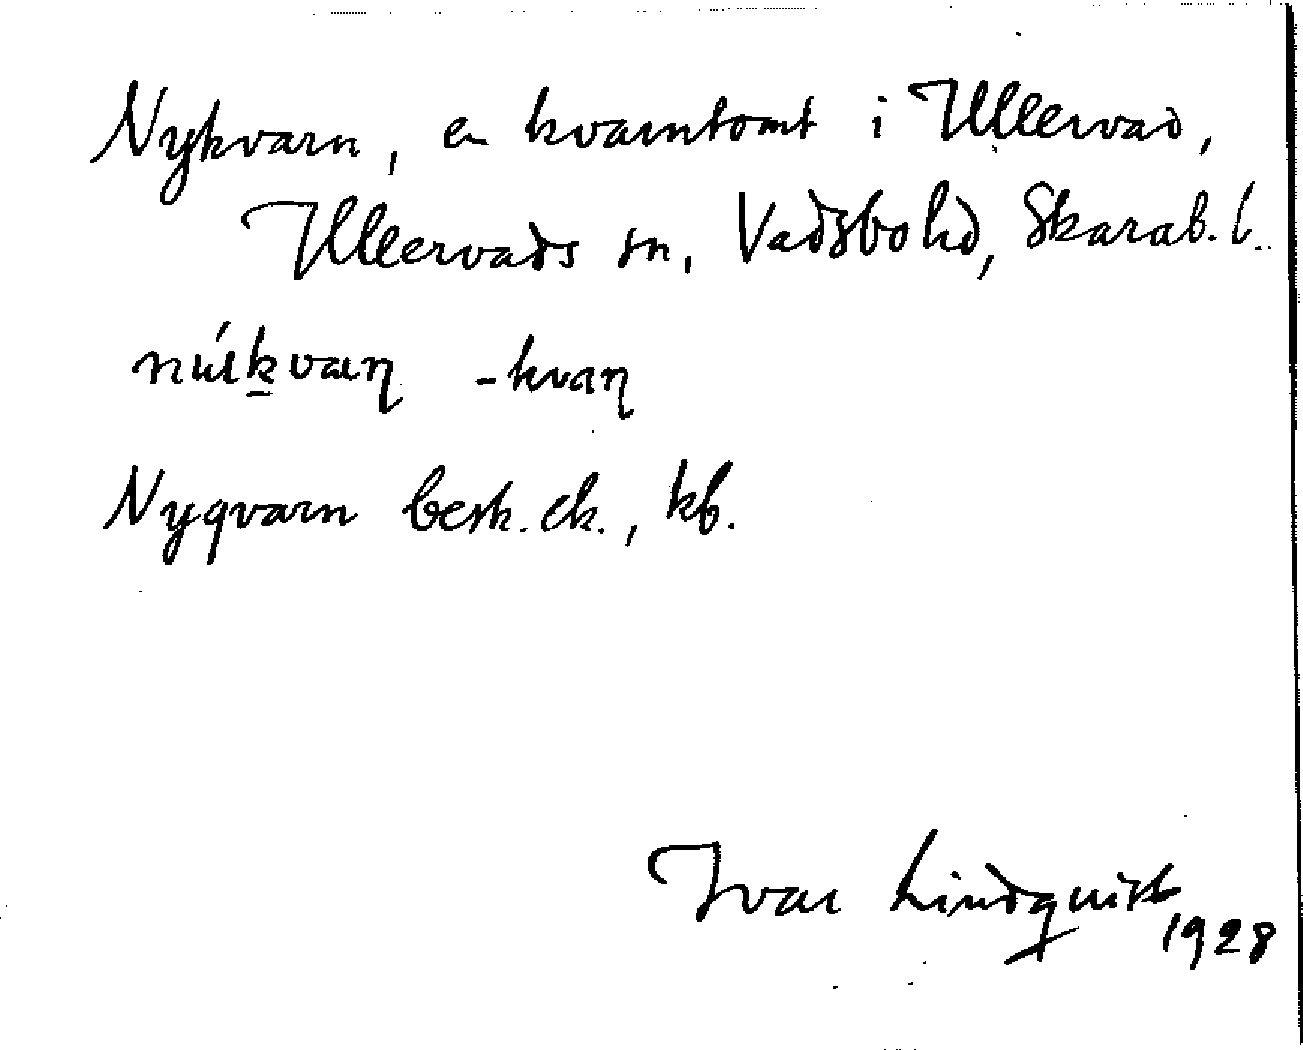 Nykvarn, en kvarntomt i Ullervad,
Ullervads sn, Vadsbo hd, Skarab. l.
-kvaɳ
Nyqvarn besk. ek., kb.
Ivar Lindquist
1928